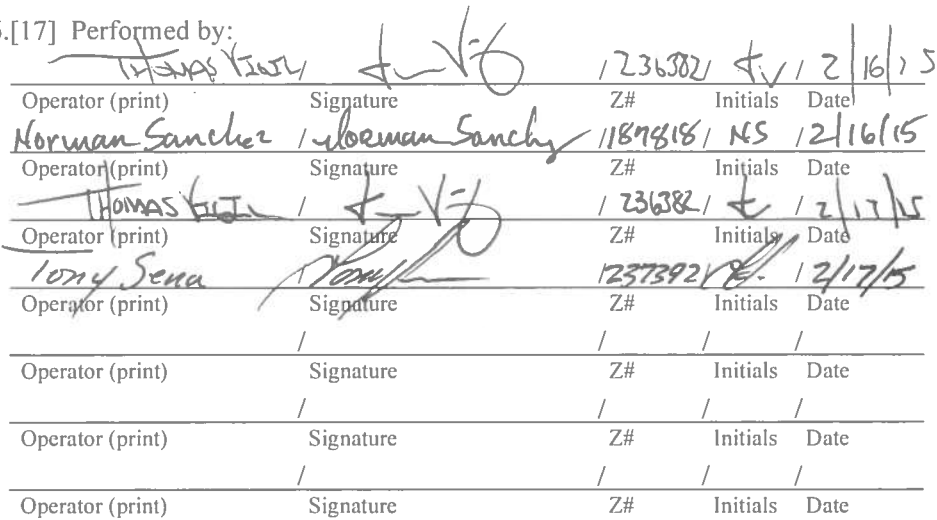 .[17] Performed by:
THOMAS VIGIL / / 236382 / tv / 2/16/15
Operator (print) Signature Z# Initials Date
Norman Sanchez / Norman Sanchez / 187818 / NS / 2/16/15
Operator (print) Signature Z# Initials Date
THOMAS VIGIL / / 236382 / / 2/17/15
Operator (print) Signature Z# Initials Date
Tony Sena / / 237392 / / 2/17/15
Operator (print) Signature Z# Initials Date
/ / / /
Operator (print) Signature Z# Initials Date
/ / / /
Operator (print) Signature Z# Initials Date
/ / / /
Operator (print) Signature Z# Initials Date